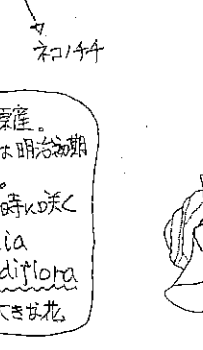 ネコノチチ
原産。
は明治初期
時に咲く
ia
diflora
大きな花。